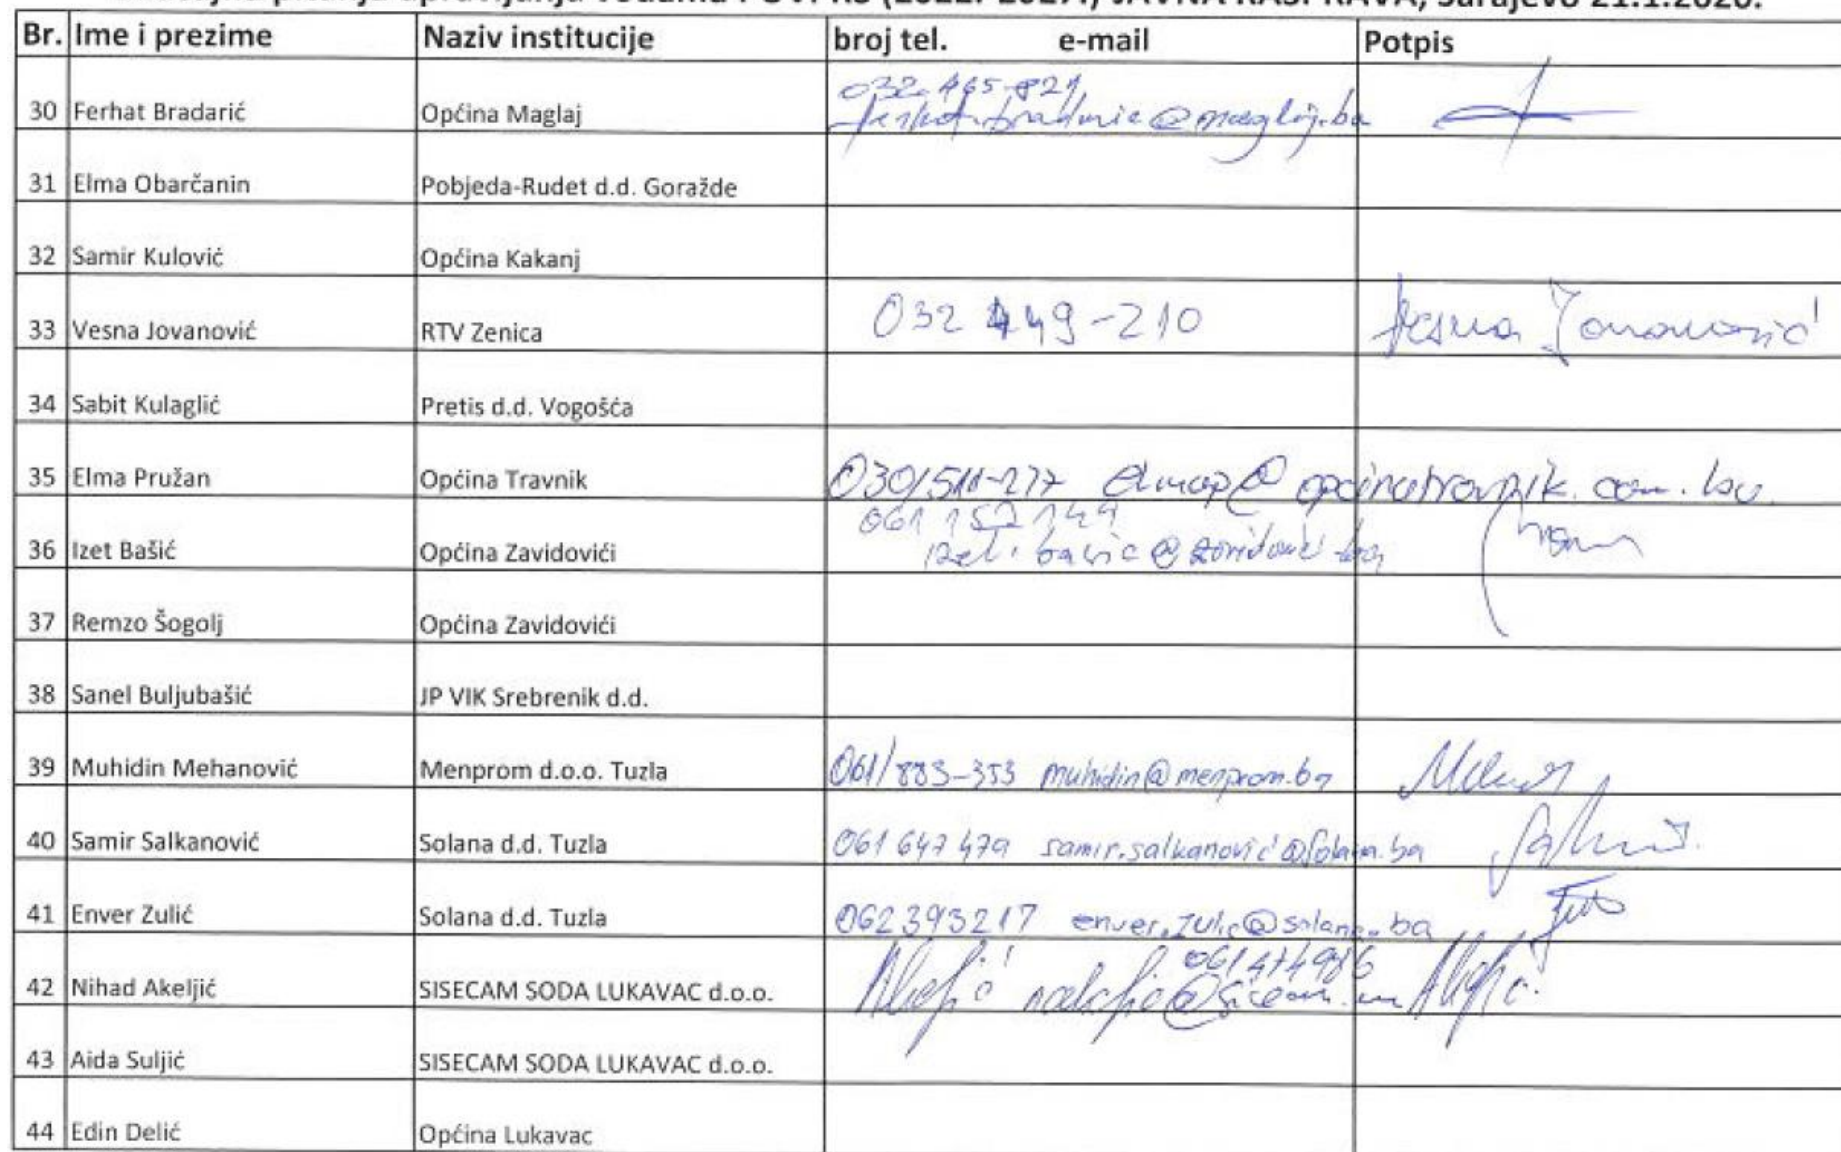 JAVNA RASPRAVA, Sarajevo 21.1.2020.
Br. Ime i prezime Naziv institucije broj tel. e-mail Potpis
032-465-821
30 Ferhat Bradarić Općina Maglaj
31 Elma Obarčanin Pobjeda-Rudet d.d. Goražde
32 Samir Kulović Općina Kakanj
33 Vesna Jovanović RTV Zenica 032 449-210 Vesna Jovanović
34 Sabit Kulaglić Pretis d.d. Vogošća
35 Elma Pružan Općina Travnik 030/511-277 elmap@opcinatravnik.com.ba
061 157 149
36 Izet Bašić Općina Zavidovići
37 Remzo Šogolj Općina Zavidovići
38 Sanel Buljubašić JP VIK Srebrenik d.d.
39 Muhidin Mehanović Menprom d.o.o. Tuzla 061/883-353 muhidin@menprom.ba
40 Samir Salkanović Solana d.d. Tuzla 061 647 479 samir.salkanović@solana.ba
41 Enver Zulić Solana d.d. Tuzla 062393217 enver.zulic@solana.ba
061474986
42 Nihad Akeljić SISECAM SODA LUKAVAC d.o.o.
43 Aida Suljić SISECAM SODA LUKAVAC d.o.o.
44 Edin Delić Općina Lukavac